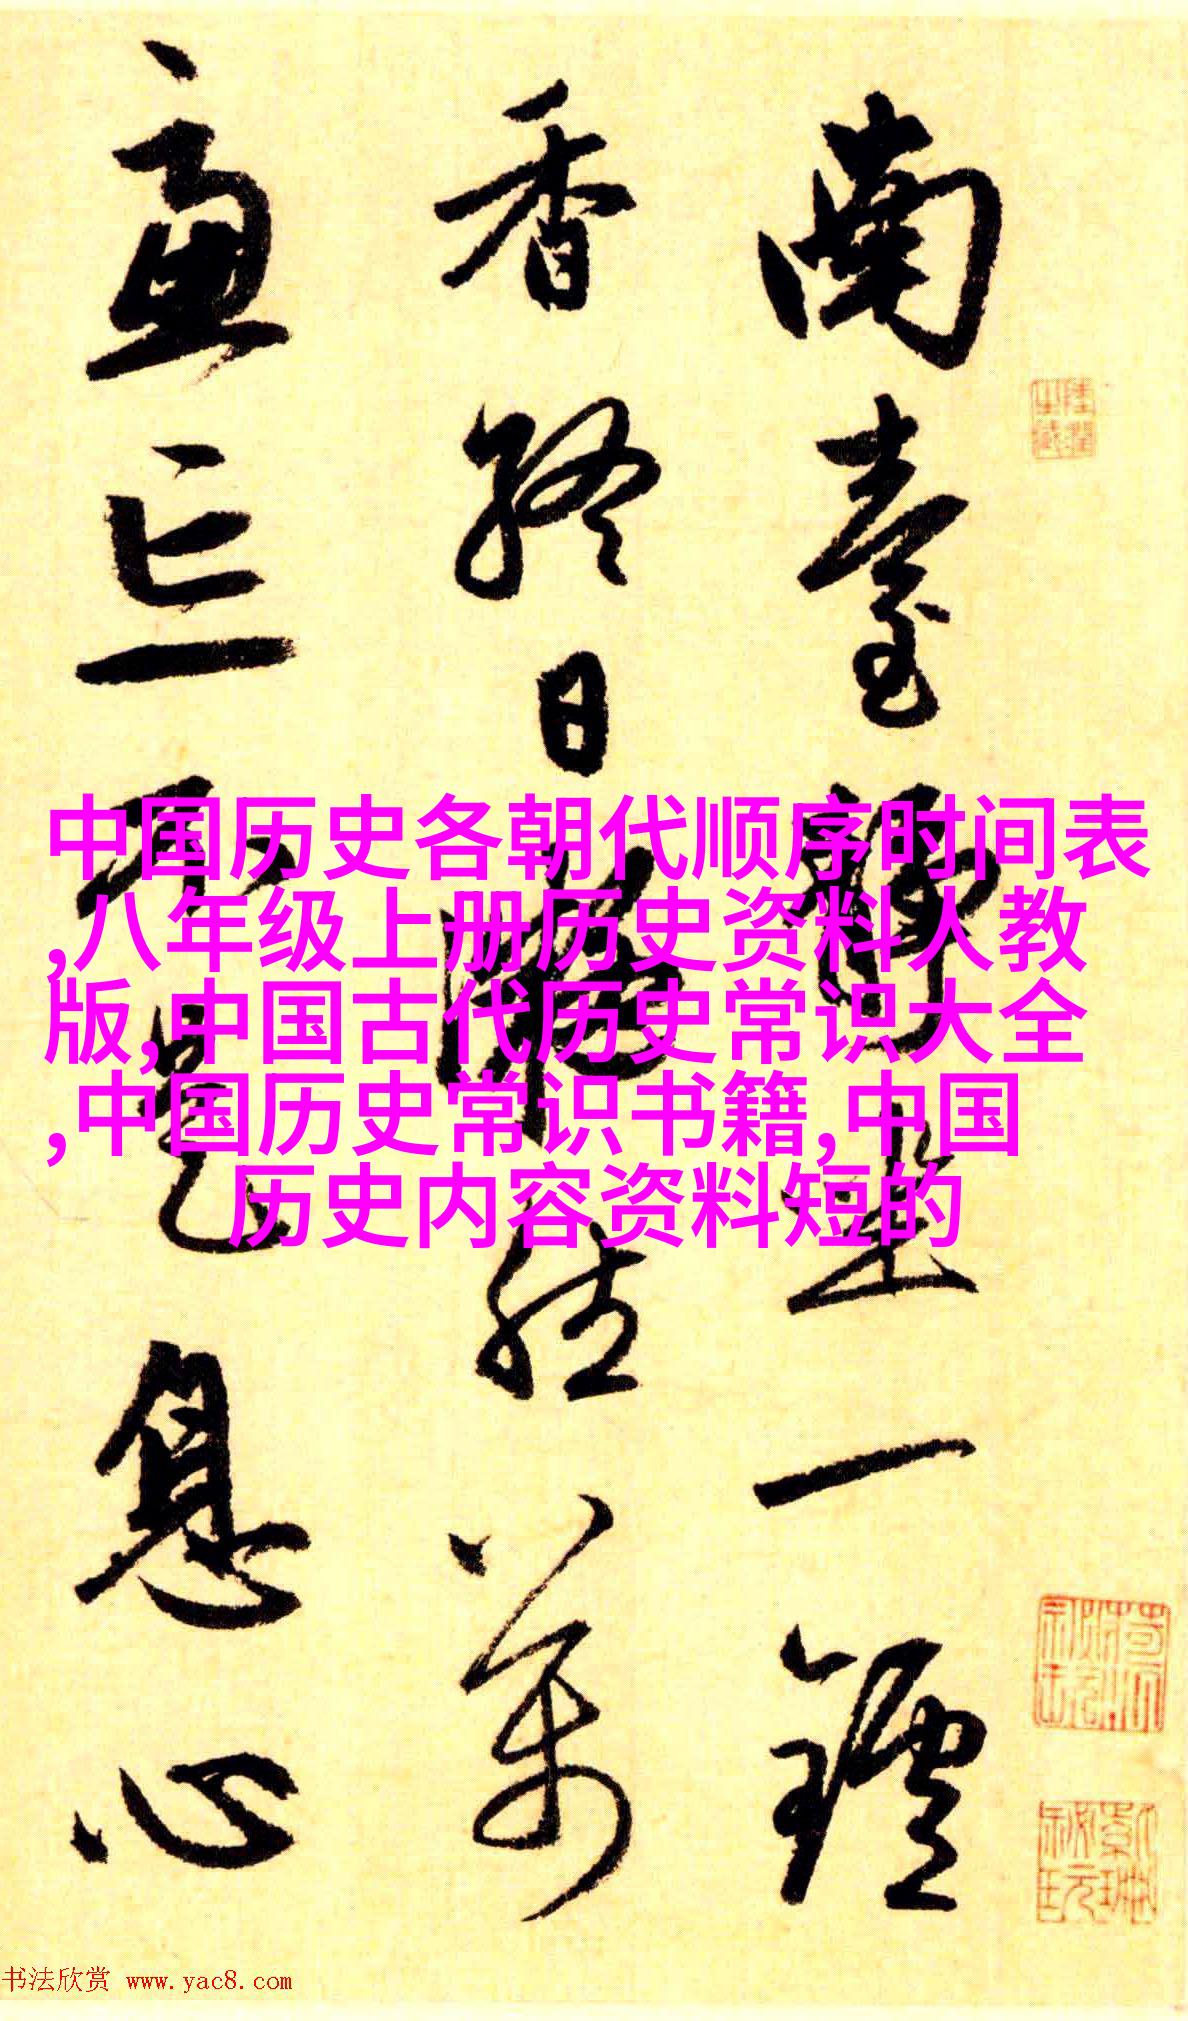 南臺靜坐一鑪
香終日凝然萬
慮忘不是息心
中国历史各朝代顺序时间表
,八年级上册历史资料人教
版,中国古代历史常识大全
,中国历史常识书籍,中国
历史内容资料短的
书法欣赏 www.yac8.com